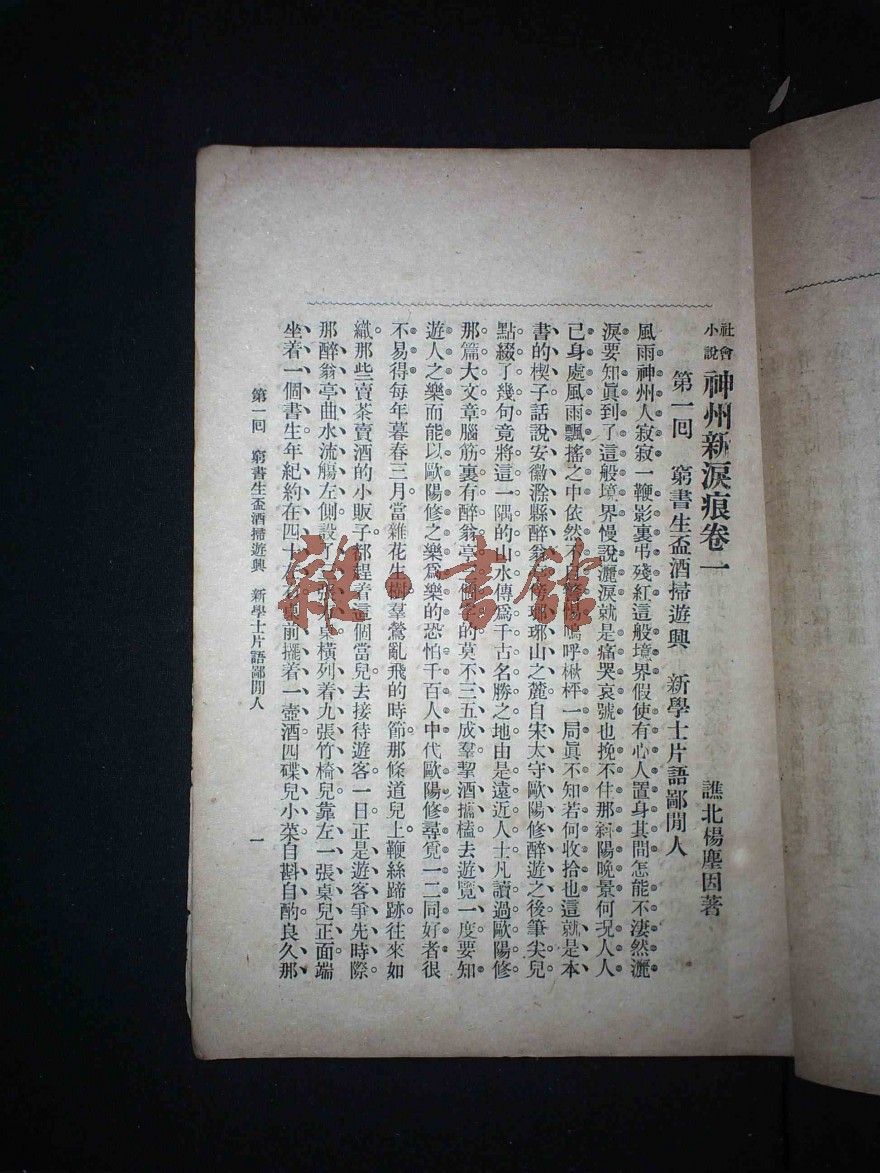 社會小說
神州新淚痕卷一
譙北楊塵因著
第一回 窮書生盃酒掃遊興 新學士片語鄙閒人
風雨神州人寂寂一鞭影裏弔殘紅這般境界假使有心人置身其間怎能不淒然灑
淚要知眞到了這般境界慢說灑淚就是痛哭哀號也挽不住那斜陽晚景何況人人
已身處風雨飄搖之中依然不惕嗚呼楸枰一局眞不知若何收拾也這就是本
書的楔子話說安徽滁縣醉翁亭傍瑯琊山之麓自宋太守歐陽修醉遊之後筆尖兒
點綴了幾句竟將這一隅的山水傳爲千古名勝之地由是遠近人士凡讀過歐陽修
那篇大文章腦筋裏有醉翁亭的莫不三五成羣挈酒攜榼去遊覽一度要知
遊人之樂而能以歐陽修之樂爲樂的恐怕千百人中代歐陽修尋覓一二同好者很
不易得每年暮春三月當雜花生樹羣鶯亂飛的時節那條道兒上鞭絲蹄跡往來如
織那些賣茶賣酒的小販子都趕着這個當兒去接待遊客一日正是遊客爭先時際
那醉翁亭曲水流觴左側設了桌橫列着九張竹椅兒靠左一張桌兒正面端
坐着一個書生年紀約在四十左右桌前擺着一壺酒四碟兒小菜自斟自酌良久那
第一回 窮書生盃酒掃遊興 新學士片語鄙閒人
一
雜·書館